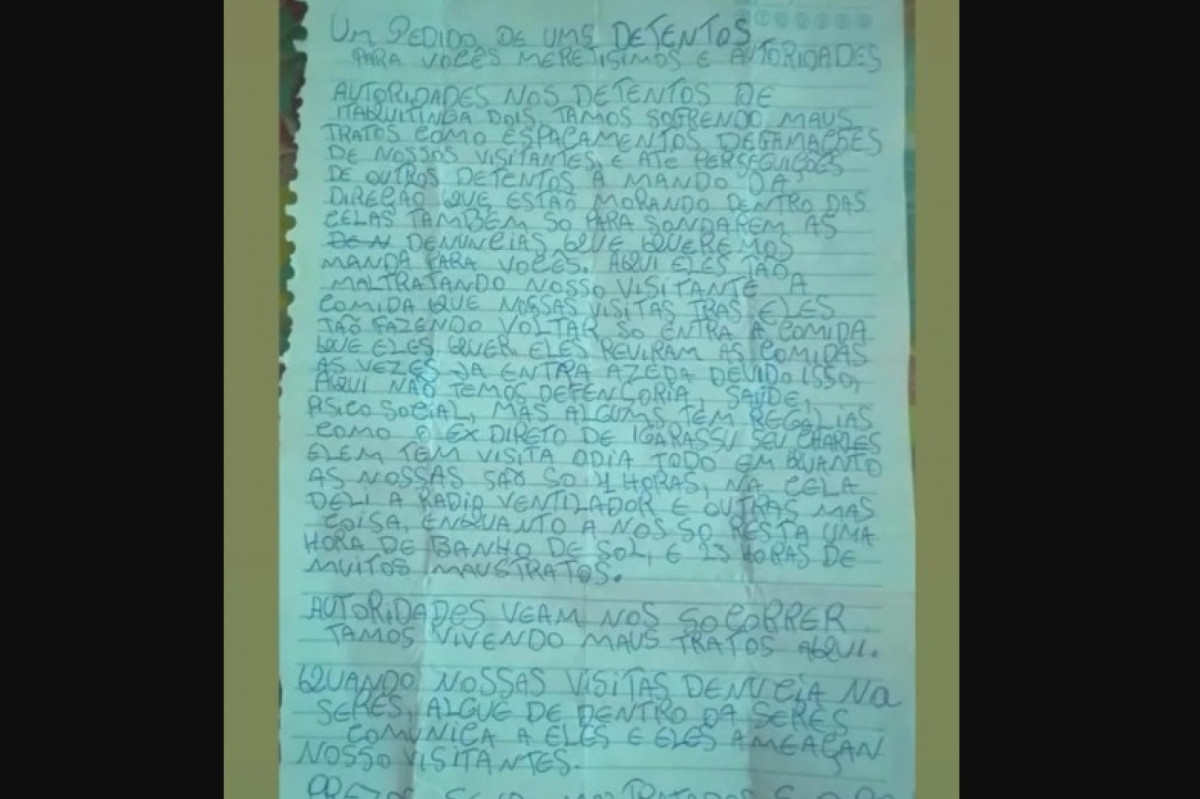 UM PEDIDO DE UMS DETENTOS
PARA VOCÊS MERETISIMOS E AUTORIDADES
AUTORIDADES NOS DETENTOS DE
ITAQUITINGA DOIS, TAMOS SOFRENDO MAUS
TRATOS COMO ESPAÇAMENTOS, DEGAMAÇÕES
DE NOSSOS VISITANTES, E ATE PERSEGUIÇÕES
DE OUTROS DETENTOS A MANDO DA
DIREÇÃO QUE ESTÃO MORANDO DENTRO DAS
CELAS TAMBÉM SO PARA SONDAREM AS
DEN DENUNCIAS QUE QUEREMOS
MANDA PARA VOCES. AQUI ELES TÃO
MALTRATANDO NOSSO VISITANTE A
COMIDA QUE NOSSAS VISITAS TRAS ELES
TÃO FAZENDO VOLTAR SO ENTRA A COMIDA
QUE ELES QUER. ELES REVIRAM AS COMIDAS
AS VEZES JA ENTRA AZEDA DEVIDO ISSO,
AQUI NÃO TEMOS DEFENSORIA, SAUDE,
PISICO SOCIAL, MAS ALGUMS TEM REGALIAS
COMO O EX DIRETO DE IGARASSU SEU CHARLES
ELEM TEM VISITA ODIA TODO EM QUANTO
AS NOSSAS SÃO SO HORAS, NA CELA
DELI A RADIO VENTILADOR E OUTRAS MAS
COISA. ENQUANTO A NOS SO RESTA UMA
HORA DE BANHO DE SOL, E 23 HORAS DE
MUITOS MAUSTRATOS.
AUTORIDADES VEAM NOS SOCORRER
TAMOS VIVENDO MAUS TRATOS AQUI.
QUANDO NOSSAS VISITAS DENUCIA NA
SERES, ALGUE DE DENTRO DA SERES
COMUNICA A ELES E ELES AMEAÇAN
NOSSO VISITANTES.